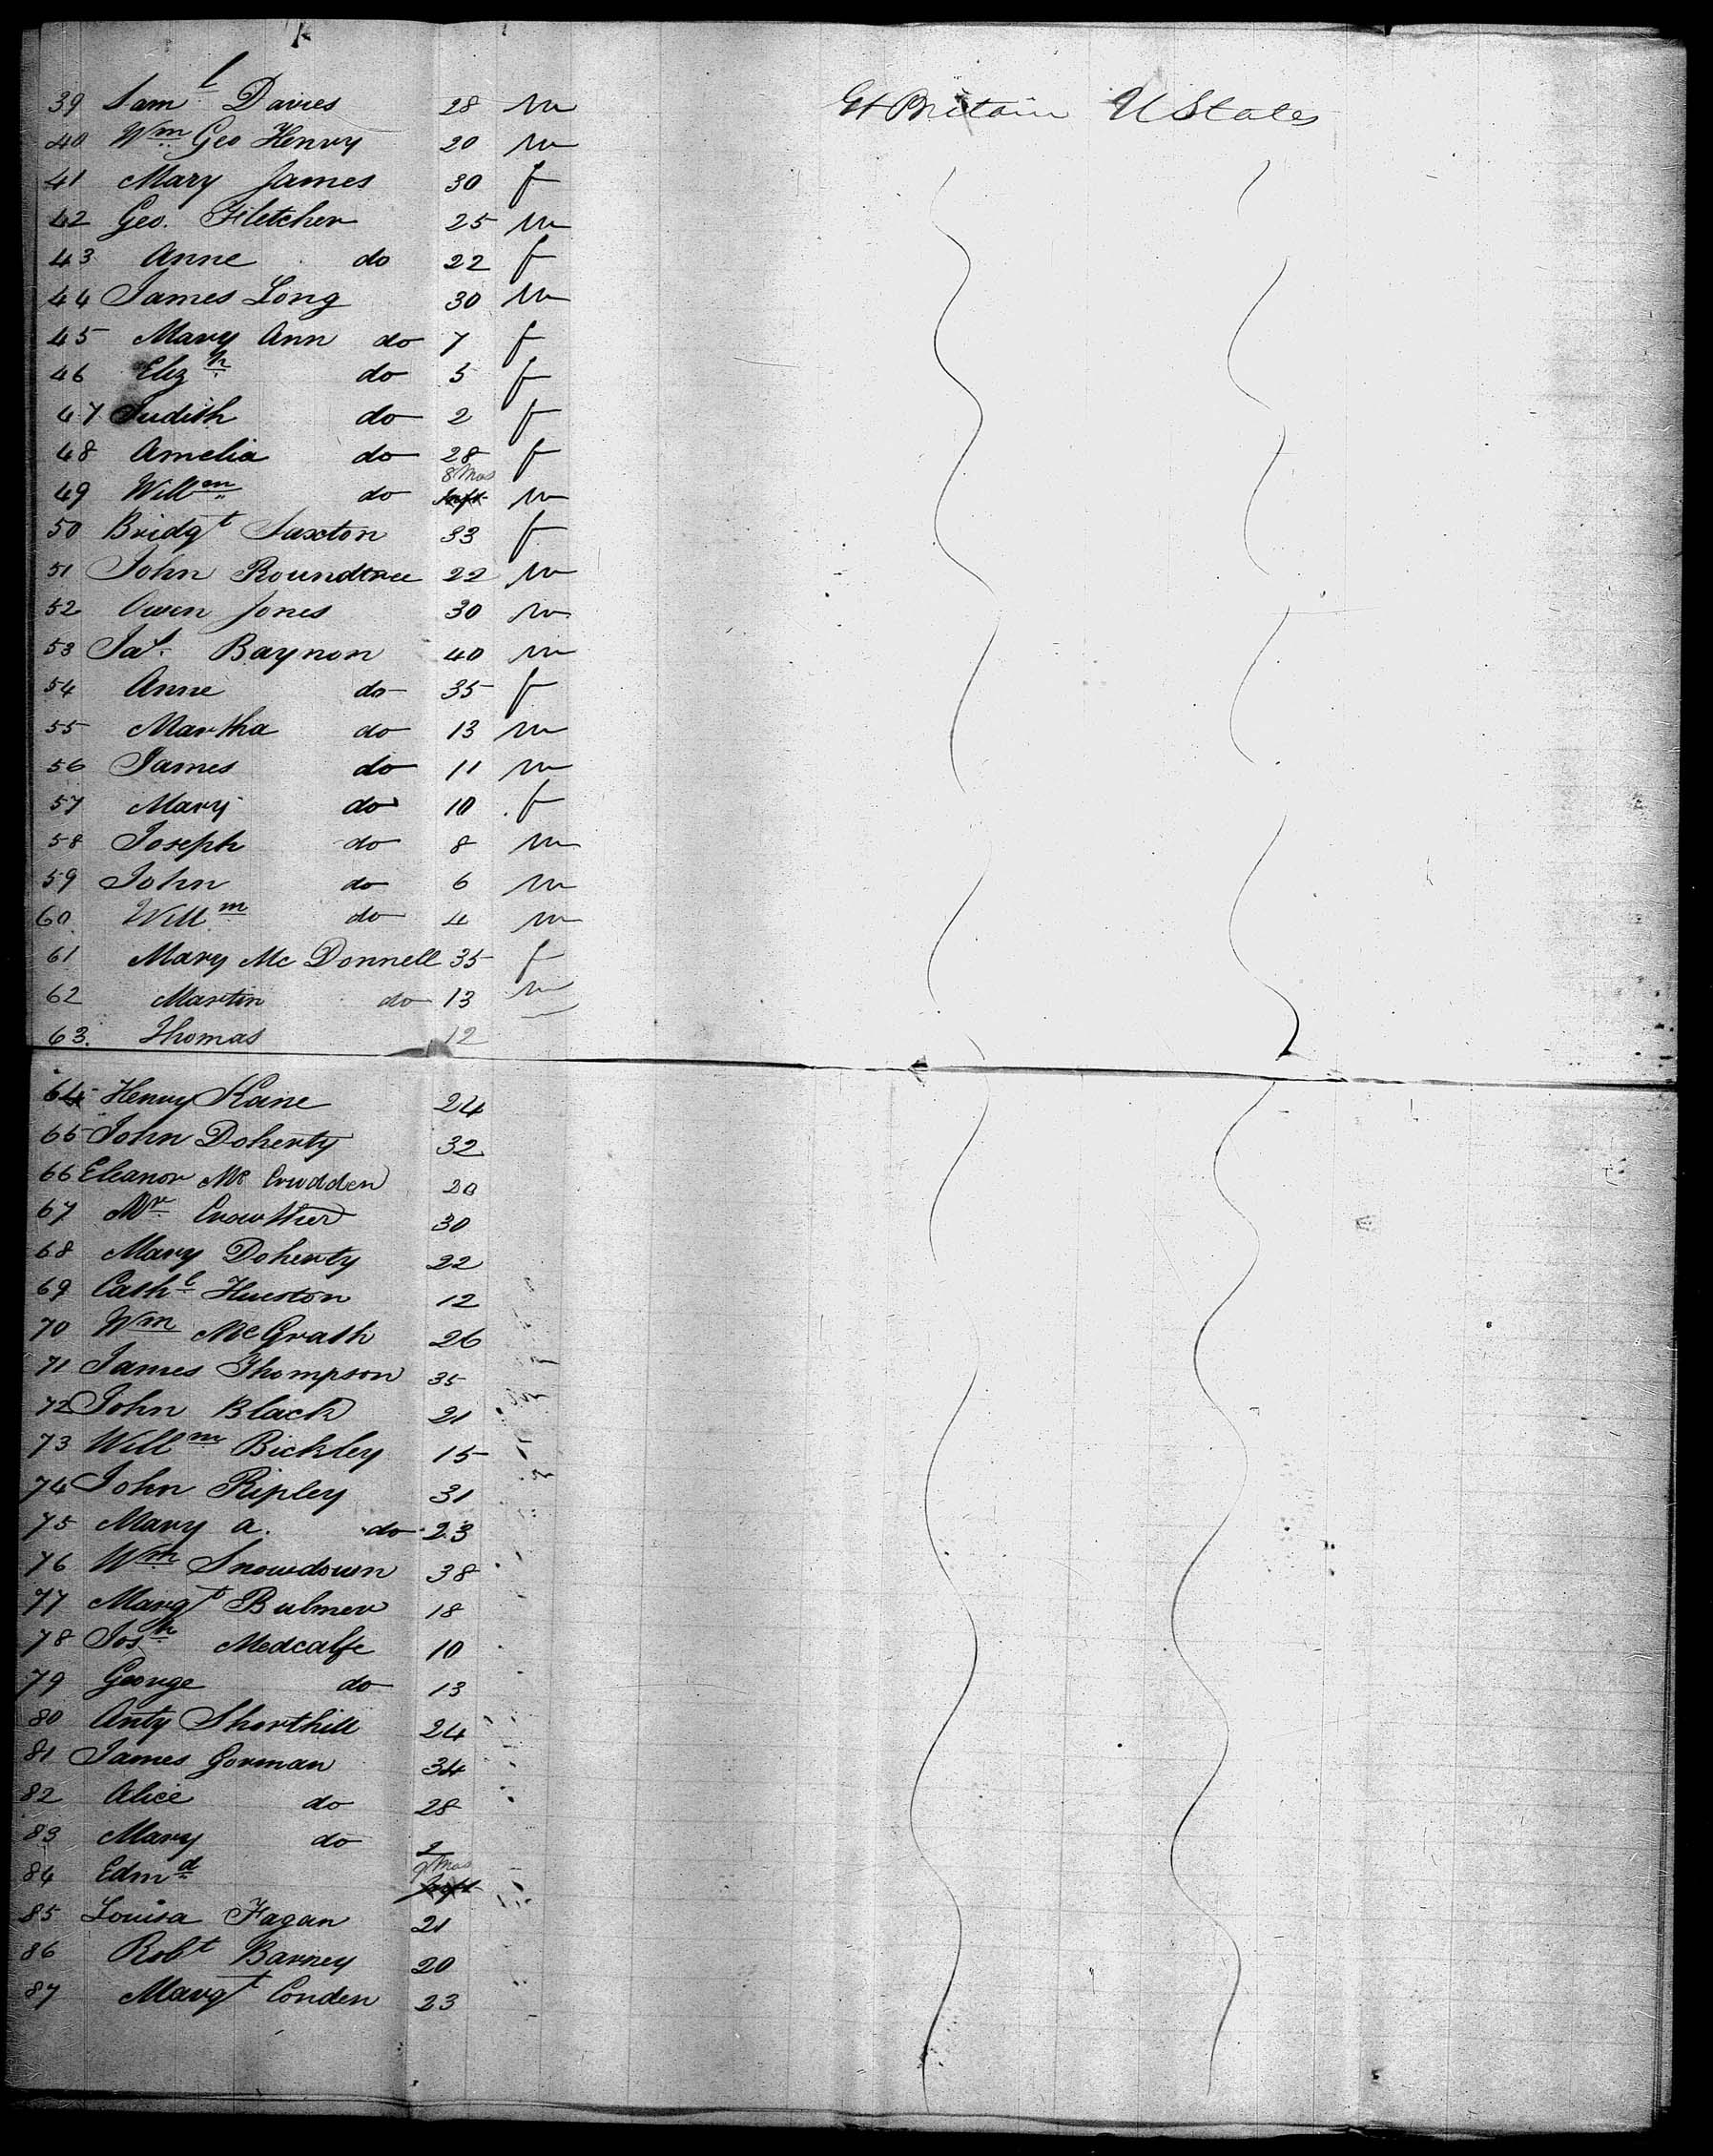 39 Saml Davies 28 m Gt Britain U States
40 Wm Geo Henry 20 m
41 Mary James 30 f
42 Geo. Fletcher 25 m
43 Anne do 22 f
44 James Long 30 m
45 Mary Ann do 7 f
46 Elizh do 5 f
47 Judith do 2 f
48 Amelia do 28 f
8 Mos
49 Willm do Inft m
50 Bridgt Saxton 33 f
51 John Roundtree 22 m
52 Owen Jones 30 m
53 Jas. Baynon 40 m
54 Anne do 35 f
55 Martha do 13 m
56 James do 11 m
57 Mary do 10 f
58 Joseph do 8 m
59 John do 6 m
60 Willm do 4 m
61 Mary Mc Donnell 35 f
62 Martin do 13 m
63. Thomas 12
64 Henry Kane 24
65 John Doherty 32
66 Eleanor Mc Crudden 20
67 Mr Crowther 30
68 Mary Doherty 22
69 Cathe Hueston 12
70 Wm McGrath 26
71 James Thompson 35
72 John Black 21
73 Willm Bickley 15
74 John Ripley 31
75 Mary a. do 23
76 Wm Snowdown 38
77 Margt Bulmer 18
78 Josh Medcalfe 10
79 George do 13
80 Anty Shorthill 24
81 James Gorman 34
82 Alice do 28
83 Mary do 2
9 Mos
84 Edmd Inft
85 Louisa Fagan 21
86 Robt Barney 20
87 Margt Conden 23